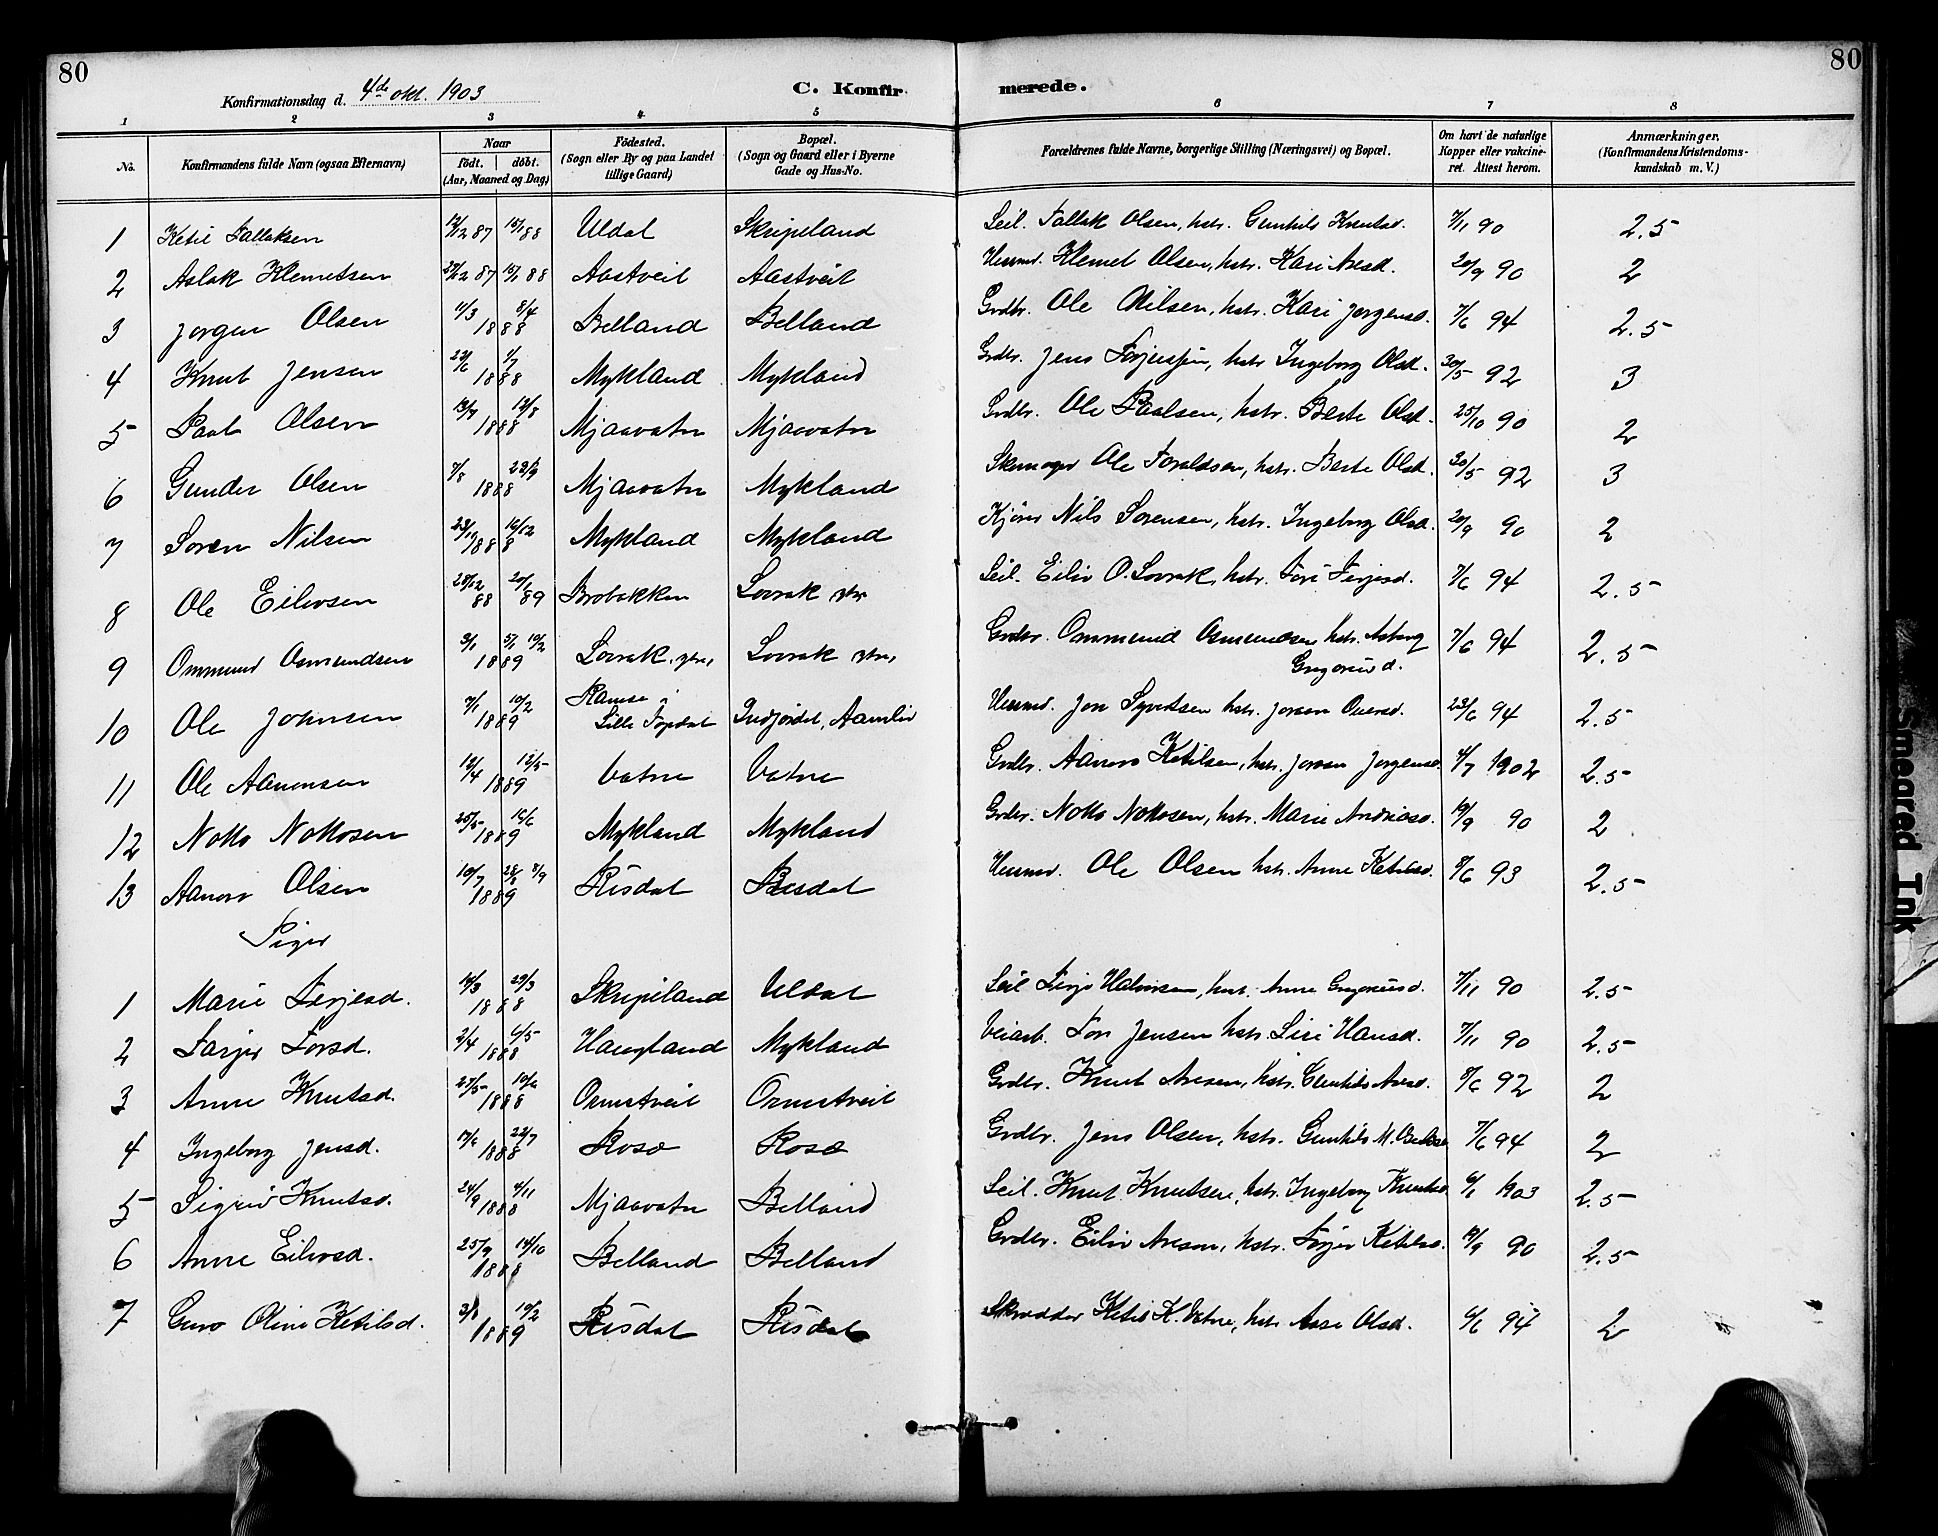 80
80
Konfirmationsdag d. 4de okt. 1903
C. Konfir
merede.
1 2 3 4 5 6 7 8
No. Konfirmandens fulde Navn (ogsaa Efternavn) Naar født. døbt. (Aar, Maaned og Dag) Födested. (Sogn eller By og paa Landet tillige Gaard) Bopæl. (Sogn og Gaard eller i Byerne Gade og Hus-No. Forældrenes fulde Navne, borgerlige Stilling (Næringsvei) og Bopæl. Om havt de naturlige Kopper eller vakcineret. Attest herom. Anmærkninger. (Konfirmandens Kristendomskundskab m. V.)
1 Ketil Tallaksen 12/12 87 15/1 88 Uldal Skripeland Seil. Tallak Olsen, hstr. Gunhild Knutsd. 7/11 90 2.5
2 Aslak Klemetsen 27/12 87 15/1 88 Aastveit Aastveit Husmd. Klemet Olsen, hstr. Kari Aresd. 20/9 90 2
3 Jorgen Olsen 11/3 8/4 1888 Belland Belland Grdbr. Ole Nilsen, hstr. Kari Jorgensd. 7/6 94 2.5
4 Knut Jensen 23/6 1/7 1888 Mykland Mykland Grdbr. Jens hstr. Ingeborg Olsd. 30/5 92 3
5 Paal Olsen 12/8 1888 Mjaavatn Mjaavatn Grdbr. Ole Paalsen, hstr. Berte Olsd. 25/10 90 2
6 Gunder Olsen 7/8 23/9 1888 Mjaavatn Mykland Skomager Ole Toraldsen, hstr. Berte Olsd. 30/5 92 3
7 Soren Nilsen 23/11 16/12 1888 Mykland Mykland Nils Sorensen, hstr. Ingeborg Olsd. 20/9 90 2
8 Ole Eilevsen 28/12 88 20/1 89 Brobakken Lovrak str. Seil. Eiliv O. Lovrak, hstr. Tori Terjesd. 7/6 94 2.5
9 Ommund Osmundsen 3/1 5/1 10/2 1889 Lovrak str. Lovrak str. Grdbr. Ommund Osmundsen hstr. Asborg
Gregoriusd. 7/6 94 2.5
10 Ole Johnsen 7/1 10/2 1889 Ramse i
Lille Topdal Aamlid Husmd. Jon Syvertsen hstr. Joran 23/6 94 2.5
11 Ole Aanonsen 12/4 12/5 1889 Vatne Vatne Grdbr. Aanon Ketilsen, hstr. Joran Jorgensd. 4/7 1902 2.5
12 Notto Nottosen 25/5 16/6 1889 Mykland Mykland Grdbr. Notto Nottosen, hstr. Marie Andreasd. 19/9 90 2
13 Aanon Olsen 10/7 28/7 8/9 1889 Risdal Risdal Husmd. Ole Olsen hstr. Anne Ketilsd. 8/6 93 2.5
Piger
1 Marie Terjesd. 14/3 29/3 1888 Skripeland Uldal Seil Terje Halvorsen, hstr. Anne Gregoriusd. 7/11 90 2.5
2 Tarjer Torsd. 2/4 6/5 1888 Haugland Mykland Veiarb. Tor Jensen hstr. Siri Hansd. 7/11 90 2.5
3 Anne Knutsd. 27/5 10/6 1888 Ormstveit Ormstveit Grdbr. Knut Aresen, hstr. Gunhild Aresd. 8/6 92 2
4 Ingeborg Jensd. 17/6 22/7 1888 Rosæ Rosæ Grdbr. Jens Olsen, hstr. Gunhild M. 7/6 94 2
5 Sigrid Knutsd. 24/9 4/11 1888 Mjaavatn Belland Seil. Knut Knutsen, hstr. Ingeborg Knutsd. 6/1 1903 2.5
6 Anne Eilevsd. 25/9 14/10 1888 Belland Belland Grdbr. Eiliv Aresen, hstr. Torjer Ketilsd. 19/9 90 2.5
7 Guro Oline Ketilsd. 3/1 10/2 1889 Risdal Risdal Skrædder Ketil K. Vatne, hstr. Aase Olsd. 6/6 94 2
Smeared Ink